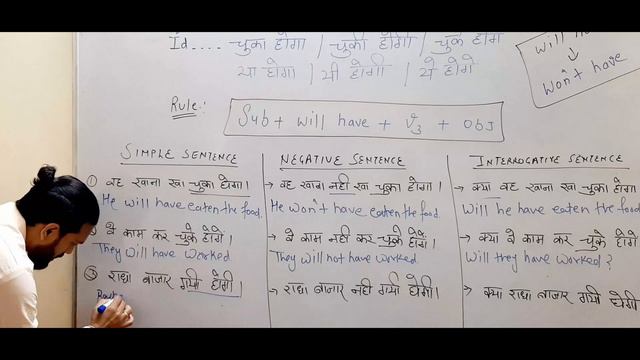 Id.... चुका होगा | चुकी होगी | चुके होंगे
या होगा | यी होगी | ये होंगे
will
↓
won't have
Rule:-
Sub + will have + V3 + obj
SIMPLE SENTENCE
① वह खाना खा चुका होगा।
He will have eaten the food.
② वे काम कर चुके होंगे।
They will have worked
③ राधा बाजार गयी होगी।
NEGATIVE SENTENCE
→ वह खाना नही खा चुका होगा।
He won't have eaten the food.
→ वे काम नही कर चुके होंगे।
They will not have worked
→ राधा बाजार नही गयी होगी।
INTERROGATIVE SENTENCE
→ क्या वह खाना खा चुका होगा
Will he have eaten the food
→ क्या वे काम कर चुके होंगे
Will they have worked?
→ क्या राधा बाजार गयी होगी